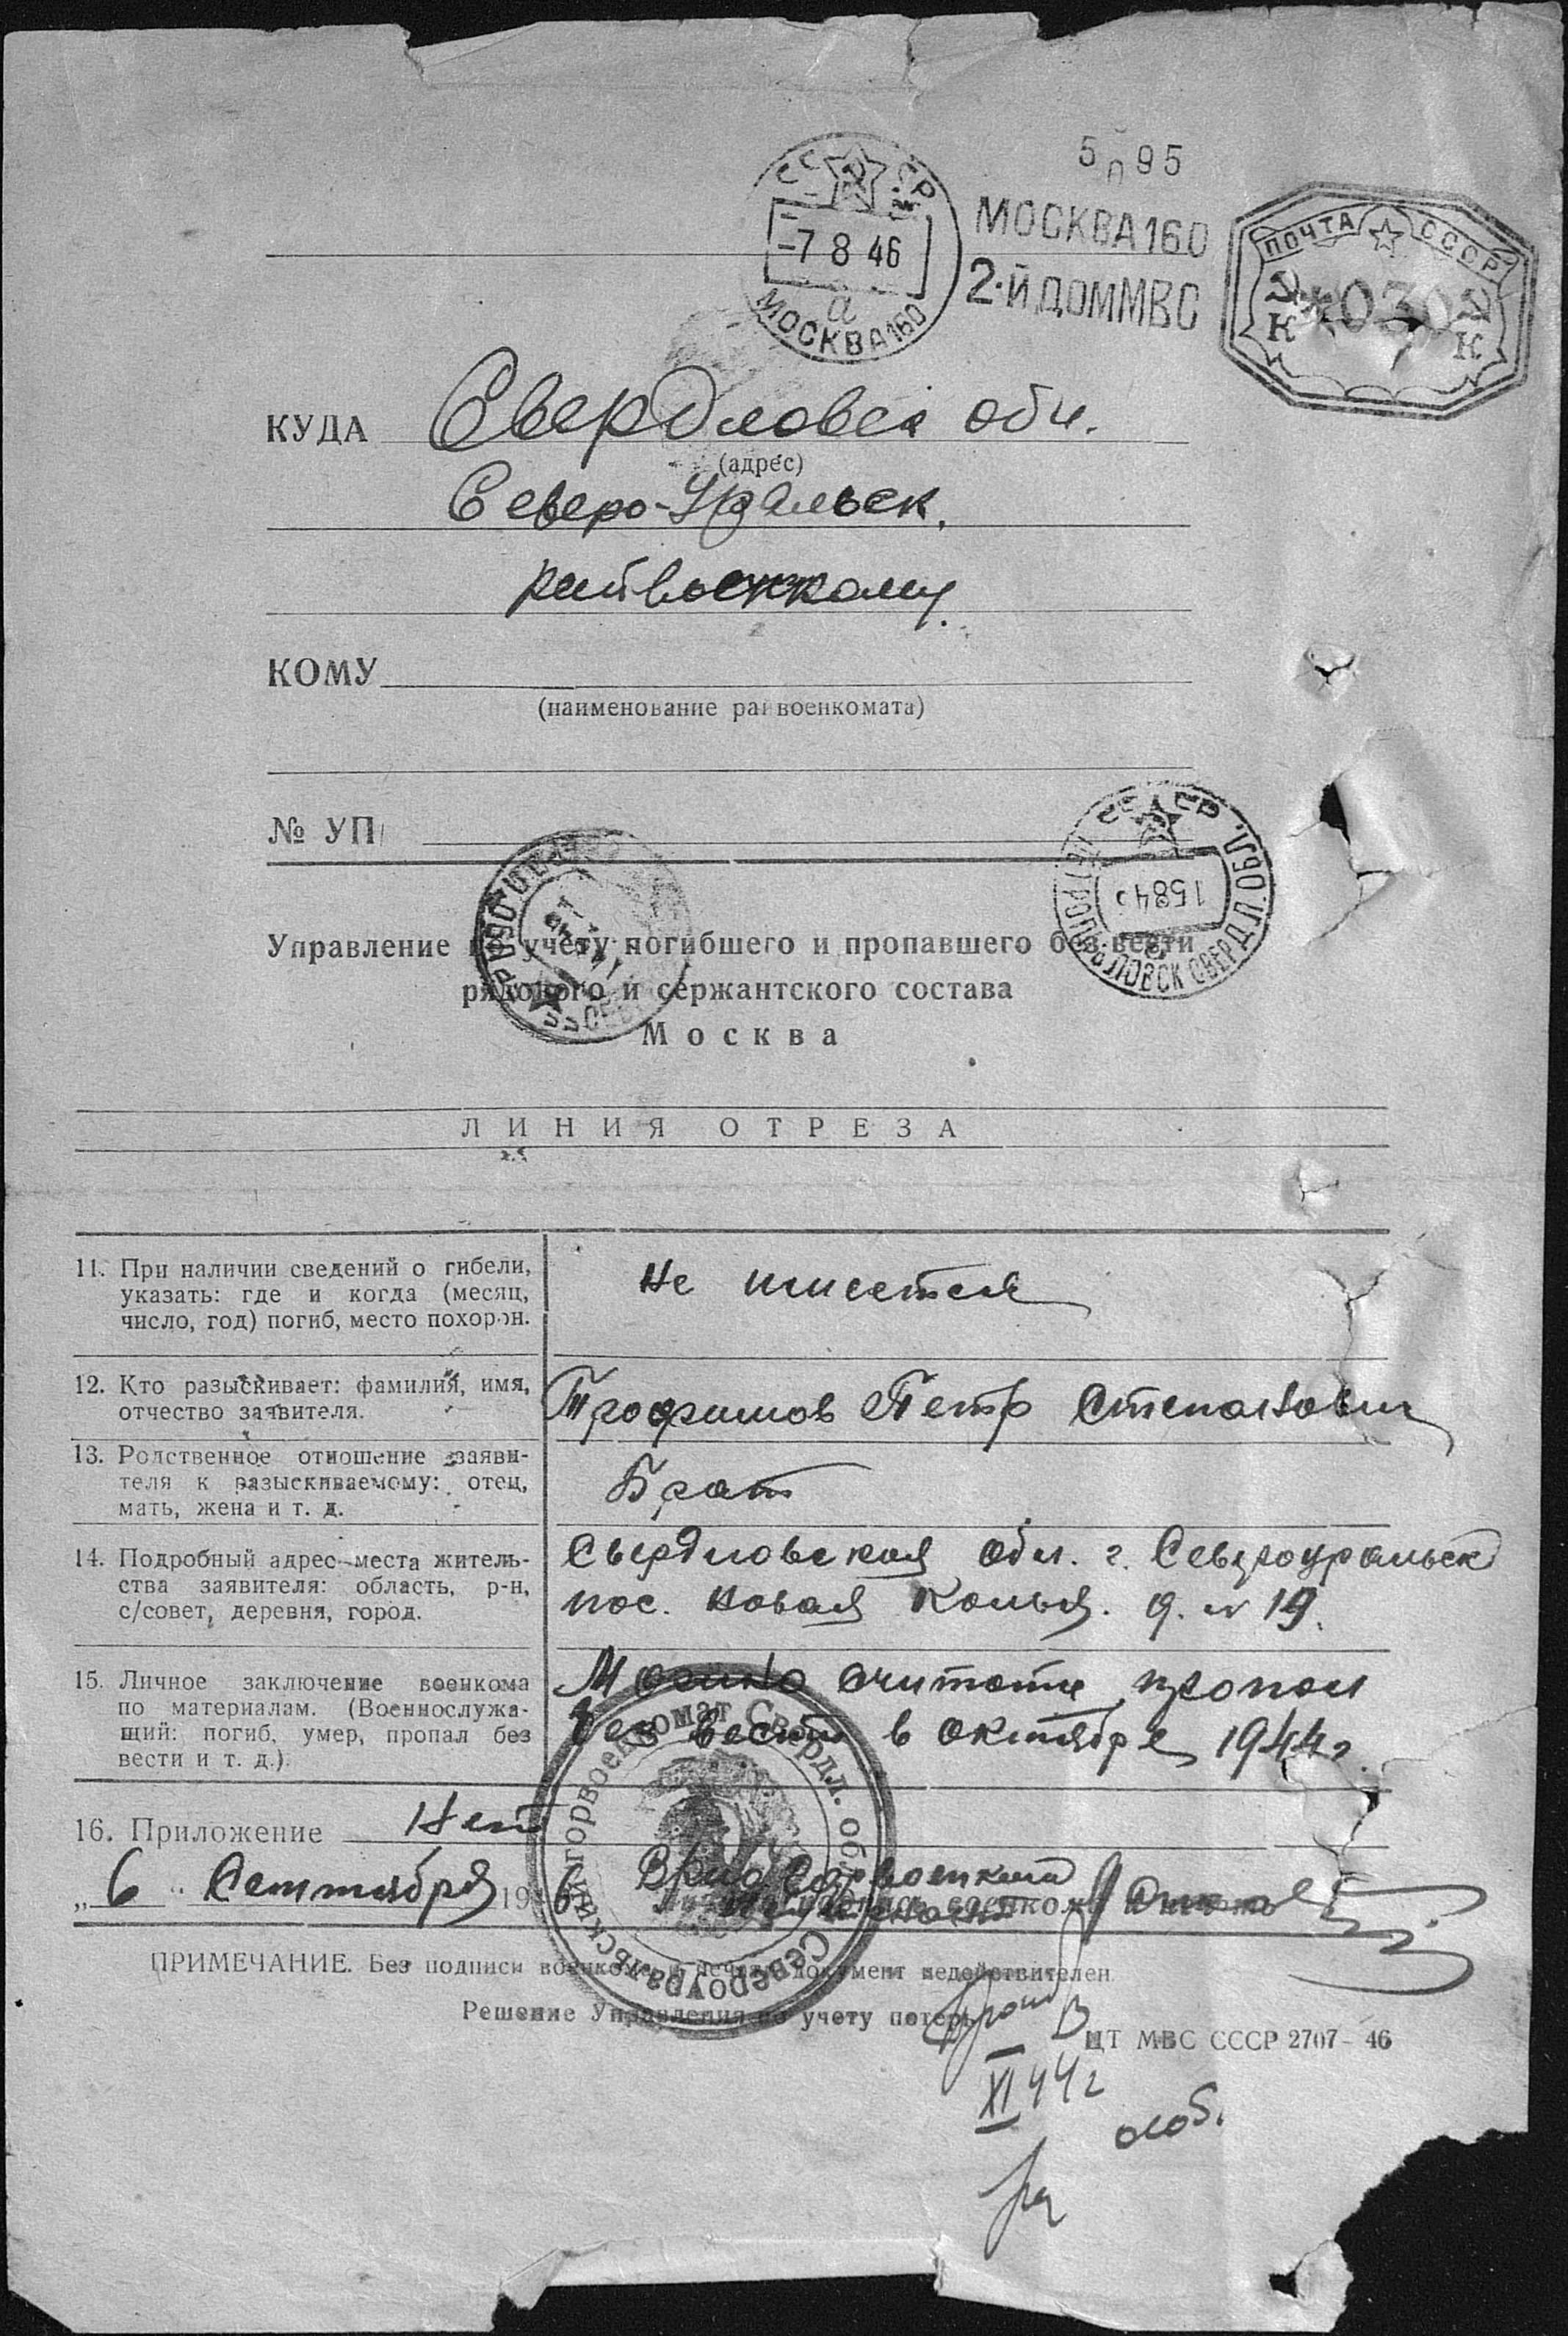 5 п 95
СССР
-7 8 46
а
МОСКВА 160
МОСКВА 160
2-Й ДОМ МВС
ПОЧТА СССР
К 030 К
КУДА Свердловск обл.
(адрес)
Северо-Уральск.
райвоенкому.
КОМУ
(наименование райвоенкомата)
№ УП
СССР
15 8 46
СВЕРДЛ. ОБЛ.
Управление по учету погибшего и пропавшего без вести
рядового и сержантского состава
Москва
ЛИНИЯ ОТРЕЗА
11. При наличии сведений о гибели,
указать: где и когда (месяц,
число, год) погиб, место похорон.
Не имеется
12. Кто разыскивает: фамилия, имя,
отчество заявителя.
Трофимов Петр Степанович
13. Родственное отношение заяви-
теля к разыскиваемому: отец,
мать, жена и т. д.
Брат
14. Подробный адрес места житель-
ства заявителя: область, р-н,
с/совет, деревня, город.
Свердловская обл. г. Североуральск
пос. Новая Колья. д. № 19.
15. Личное заключение военкома
по материалам. (Военнослужа-
щий: погиб, умер, пропал без
вести и т. д.).
Можно считать пропал
без вести в октябре 1944г.
16. Приложение Нет
„6" Сентября 1946 Врид Горвоенком
Североуральский горвоенкомат Свердл. обл.
ПРИМЕЧАНИЕ. Без подписи военкома и печати документ недействителен.
Решение Управления по учету потерь
ЦТ МВС СССР 2707-46
XI 44г
особ.